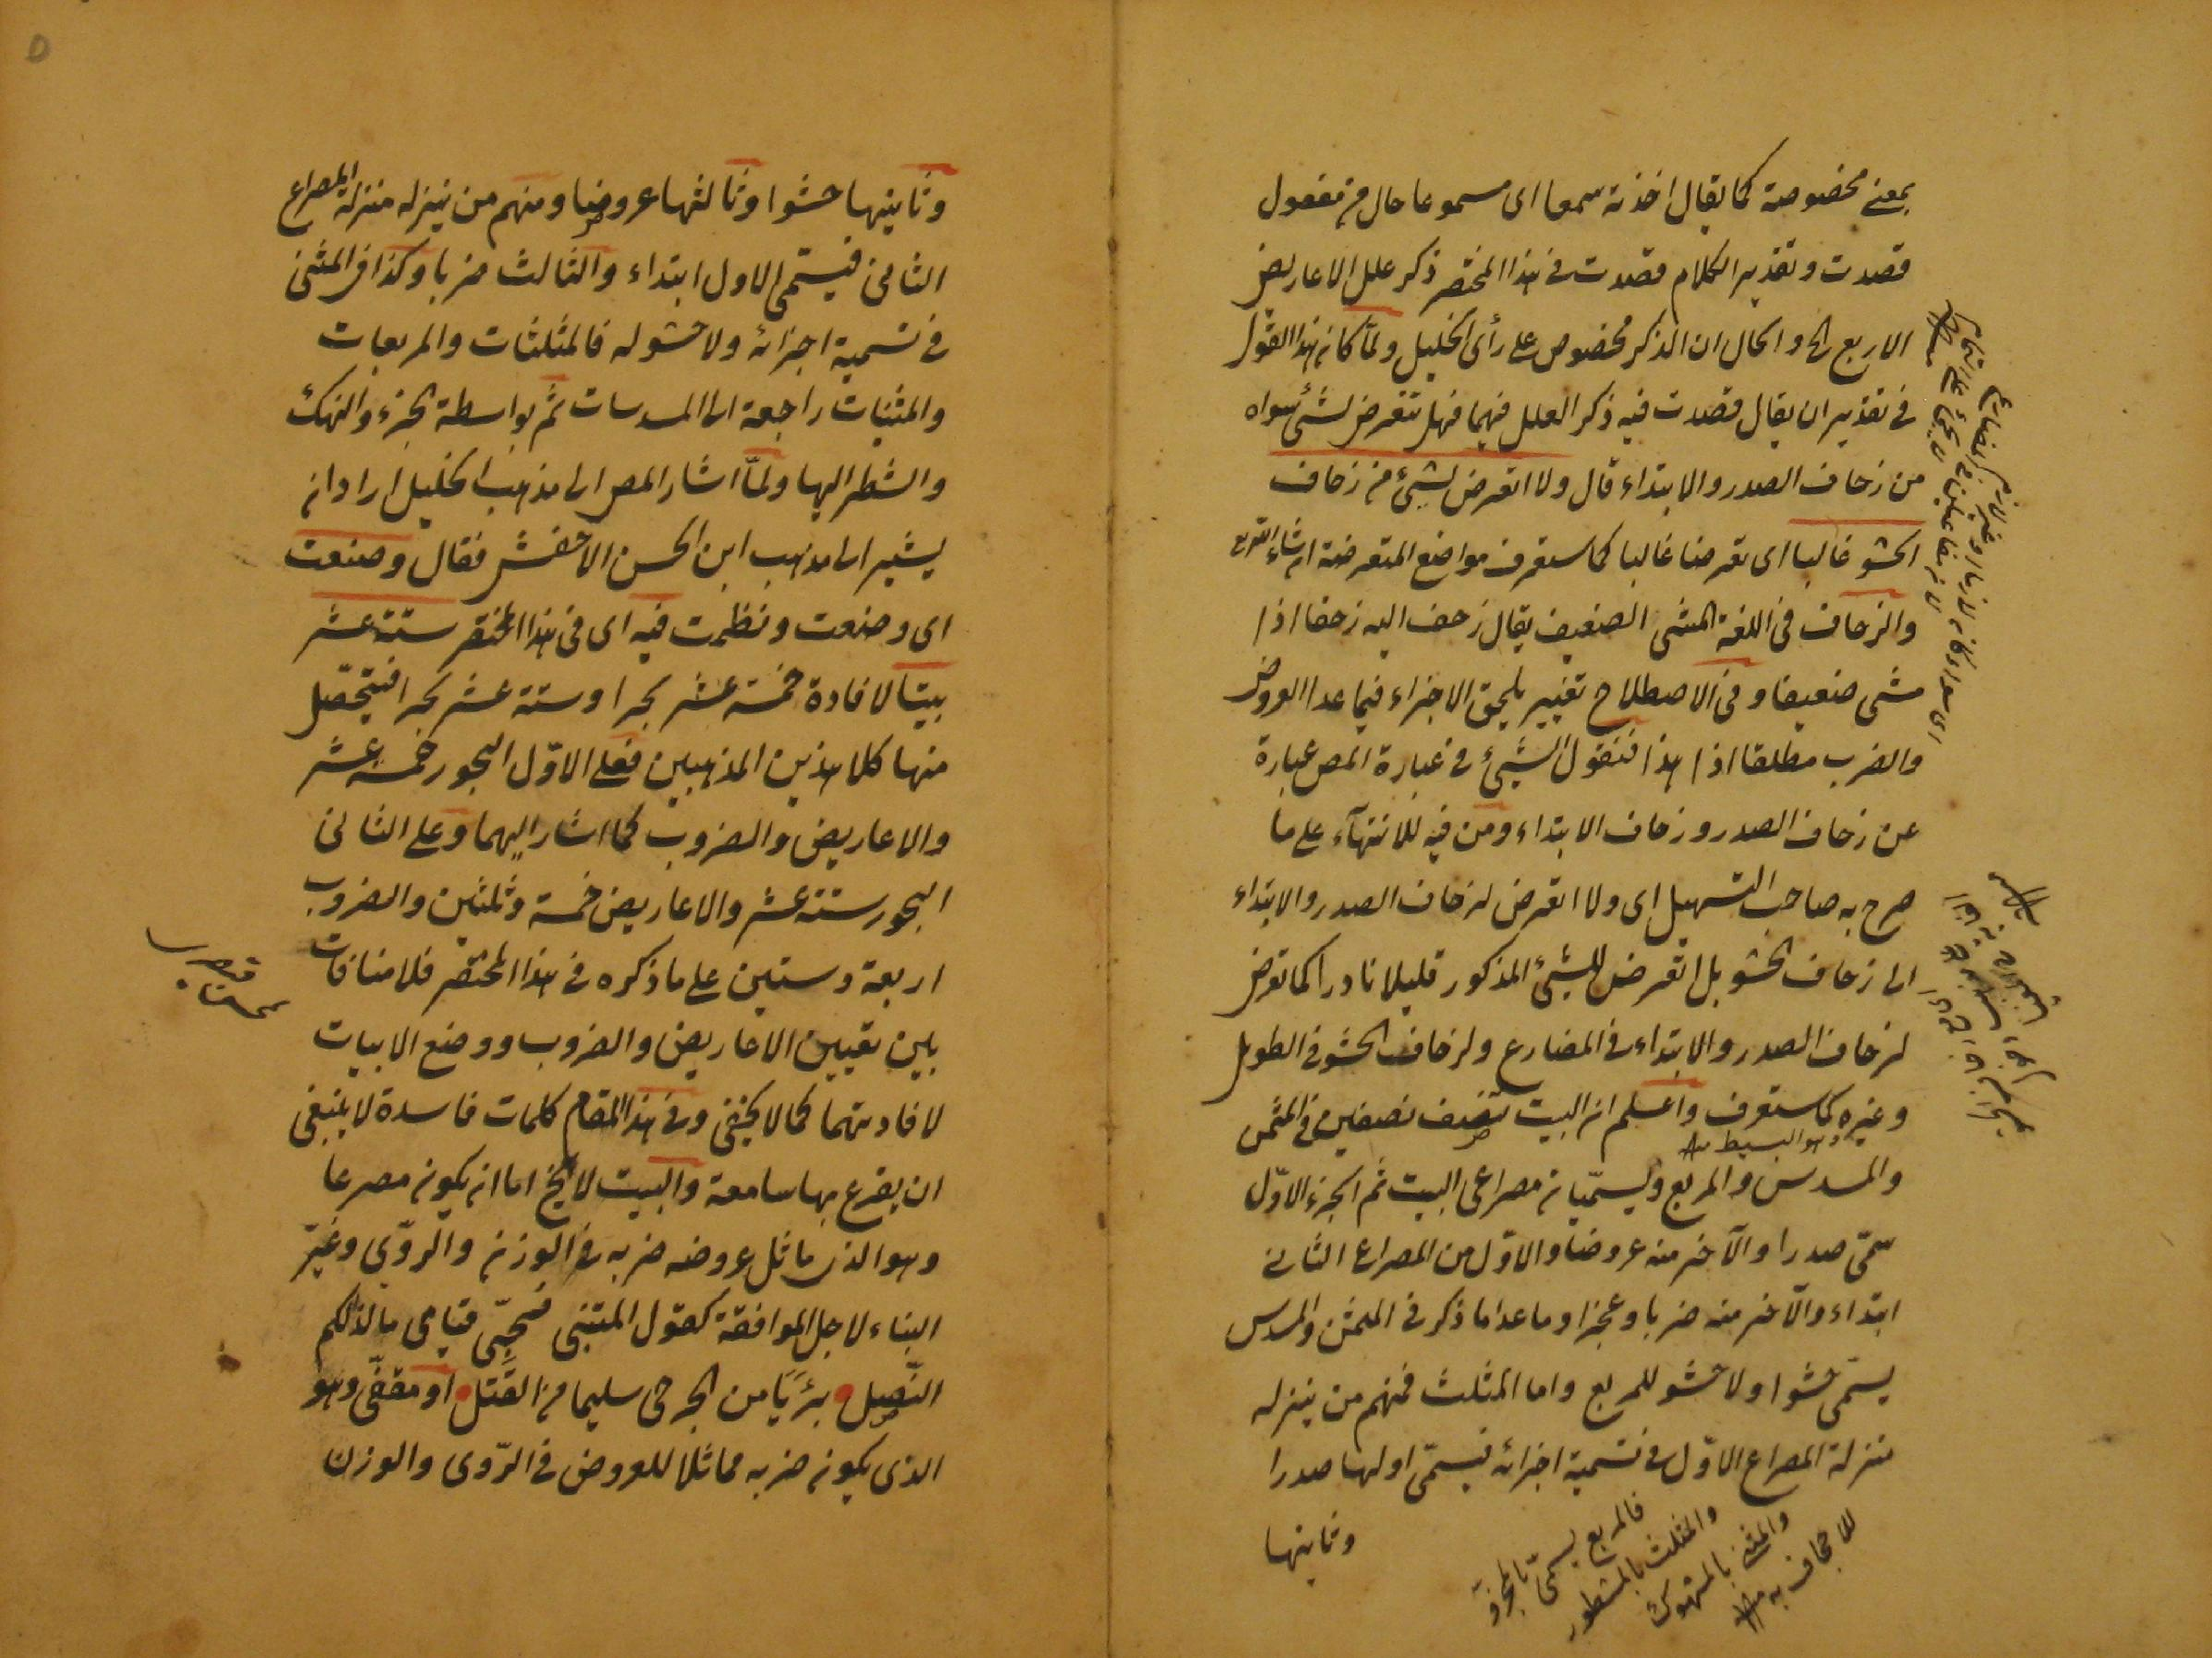 بمعنى مخصوصة كما يقال اخذته سمعا اى مسموعا حال من مفعول
قصدت وتقدير الكلام قصدت فى هذا المختصر ذكر علل الاعاريض
الاربع الخ والحال ان الذكر مخصوص على رأى الخليل ولما كان هذا القول
فى تقدير ان يقال قصدت فيه ذكر العلل فيهما فهل تتعرض لشئ سواه
من زحاف الصدر والابتداء قال ولا اتعرض لشئ من زحاف
الحشو غالبا اى تعرضا غالبا كما ستعرف مواضع المتعرضة ان شاء الله تع
والزحاف فى اللغة المشى الضعيف يقال زحف اليه زحفا اذا
مشى ضعيفا وفى الاصطلاح تغيير يلحق الاجزاء فيما عدا العروض
والضرب مطلقا اذا هذا فنقول الشئ فى عبارة المص عبارة
عن زحاف الصدر وزحاف الابتداء ومن فيه للانتهآء على ما
صرح به صاحب التسهيل اى ولا اتعرض لزحاف الصدر والابتداء
الى زحاف الحشو بل اتعرض للشئ المذكور قليلا نادرا كما تعرض
لزحاف الصدر والابتداء فى المضارع ولزحاف الحشو فى الطويل
وغيره كما ستعرف واعلم ان البيت تنصف نصفين فى المثمن
وهو البسيط
والمسدس والمربع ويسميان مصراعى البيت ثم الجزء الاول
سمى صدرا والآخر منه عروضا والاول من المصراع الثانى
ابتداء والآخر منه ضربا وعجزا وما عدا ما ذكر فى المثمن والمسدس
يسمى حشوا ولا حشو للمربع واما المثلث فمنهم من ينزله
منزلة المصراع الاول فى تسمية اجزائه فيسمى اولها صدرا
وثانيها
فالمربع يسمى بالمجزو
والمثلث بالمشطور
والمثنى بالمنهوك
للاجحاف به
وثانيها حشوا وثالثها عروضا ومنهم من ينزله منزلة المصراع
الثانى فيسمى الاول ابتداء والثالث ضربا وكذا فى المثنى
فى تسمية اجزائه ولا حشو له فالمثلثات والمربعات
والمثنيات راجعة الى المسدسات ثم بواسطة الجزء والنهك
والشطر اليها ولما اشار المص الى مذهب الخليل اراد ان
يشير الى مذهب ابن الحسن الاخفش فقال وصنعت
اى وضعت ونظمت فيه اى فى هذا المختصر ستة عشر
بيتا لافادة خمسة عشر بحرا وستة عشر بحرا فيتحصل
منها كلا هذين المذهبين فعلى الاول البحور خمسة عشر
والاعاريض والضروب كما اشار اليهما وعلى الثانى
البحور ستة عشر والاعاريض خمسة وثلثين والضروب
اربعة وستين على ما ذكره فى هذا المختصر فلا منافات
بين تعيين الاعاريض والضروب ووضع الابيات
لافادتهما كما لا يخفى وفى هذا المقام كلمات فاسدة لا ينبغى
ان يقرع بها سامعة والبيت لا يخ اما ان يكون مصرعا
وهو الذى ماثل عروضه ضربه فى الوزن والروى وغير
البناء لاجل الموافقة كقول المتنبى محبى قيامى ما لذلكم
النصل بريًا من الجرحى سليما من القتل او مقفى وهو
الذى يكون ضربه مماثلا للعروض فى الروى والوزن